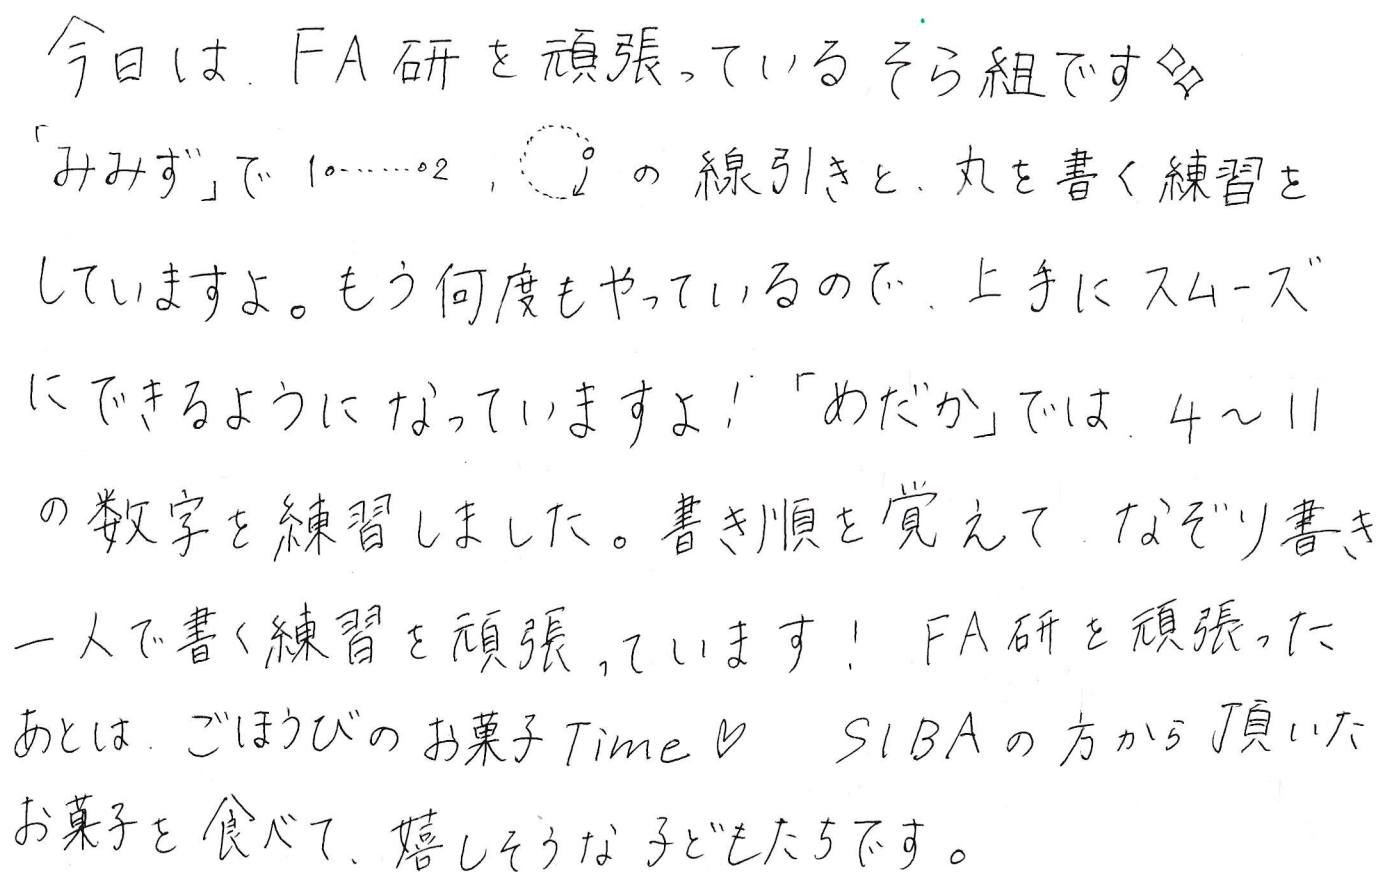 今日は、FA研を頑張っているそら組です✧✧
「みみず」で 1o‥‥‥o2 , の線引きと、丸を書く練習を
していますよ。もう何度もやっているので、上手にスムーズ
にできるようになっていますよ！「めだか」では、4～11
の数字を練習しました。書き順を覚えて、なぞり書き
一人で書く練習を頑張っています！ FA研を頑張った
あとは、ごほうびのお菓子Time♡ SIBAの方から頂いた
お菓子を食べて、嬉しそうな子どもたちです。